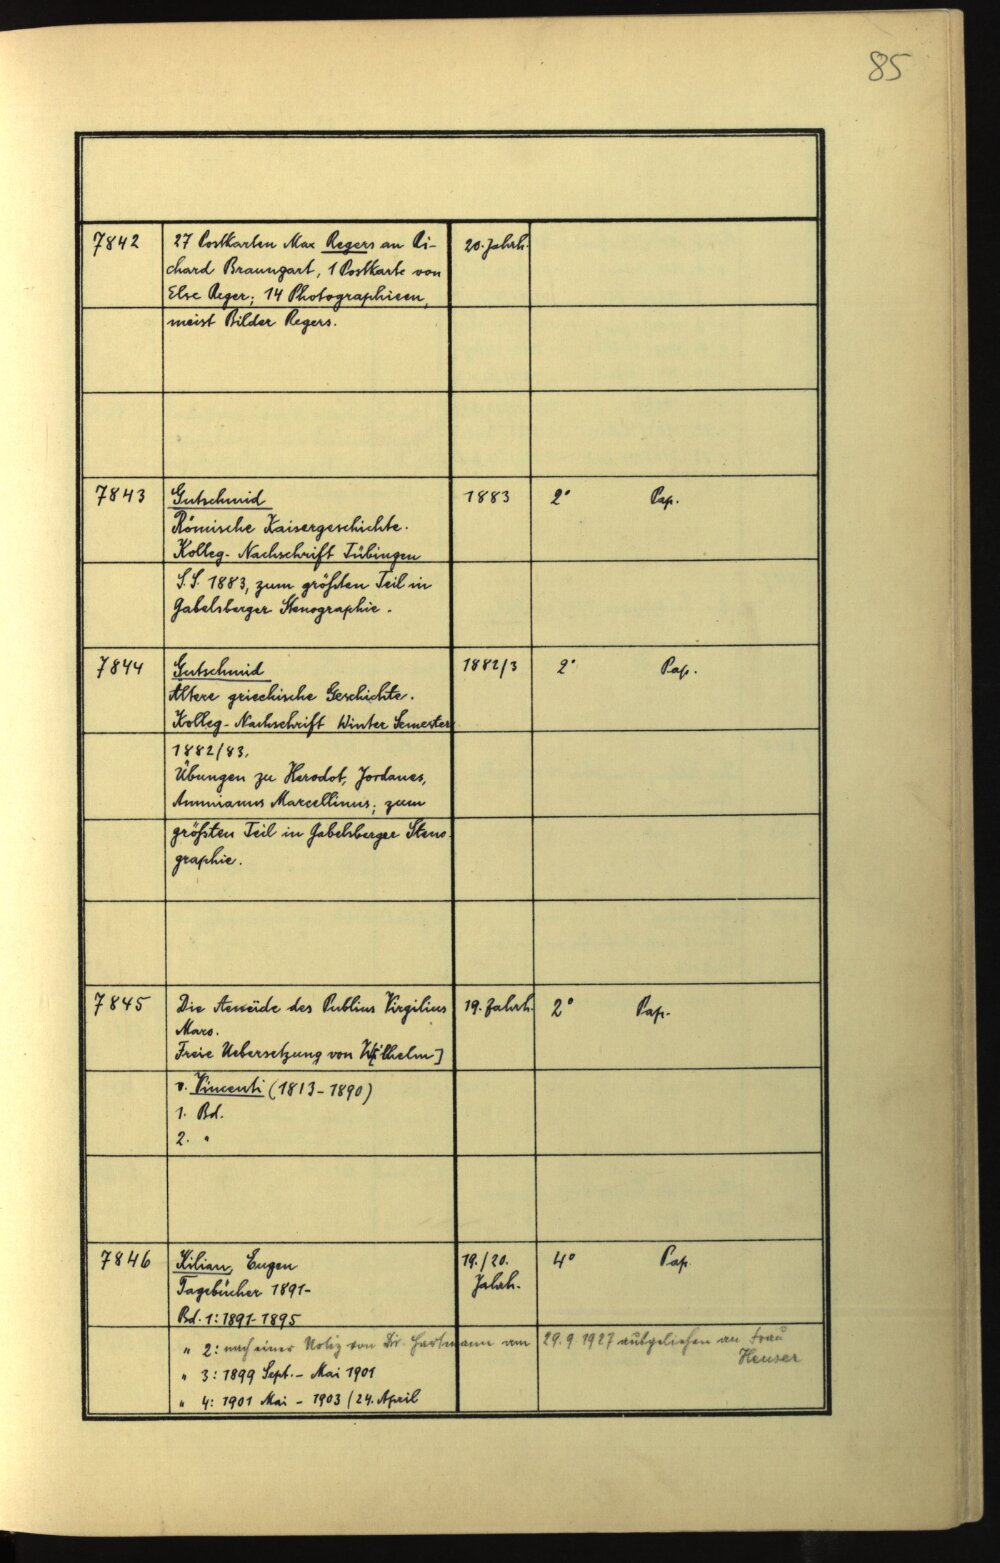 85
7842 27 Postkarten Max Regers an Ri- 20. Jahrh.
chard Braungart, 1 Postkarte von
Else Reger; 14 Photographieen,
meist Bilder Regers.
7843 Gutschmid 1883 2° Pap.
Römische Kaisergeschichte.
Kolleg-Nachschrift Tübingen
S.S. 1883, zum größten Teil in
Gabelsberger Stenographie.
7844 Gutschmid 1882/3 2° Pap.
Ältere griechische Geschichte.
Kolleg-Nachschrift Winter Semester
1882/83.
Übungen zu Herodot, Jordanes,
Ammianus Marcellinus; zum
größten Teil in Gabelsberger Steno-
graphie.
7845 Die Aeneïde des Publius Virgilius 19. Jahrh. 2° Pap.
Maro.
Freie Uebersetzung von W[ilhelm]
v. Vincenti (1813-1890)
1. Bd.
2. "
7846 Kilian, Eugen 19./20. 4° Pap.
Tagebücher 1891- Jahrh.
Bd. 1: 1891-1895
" 2: nach einer Notiz von Dir. Hartmann am 29.9.1927 ausgeliehen an Frau
Heuser
" 3: 1899 Sept. - Mai 1901
" 4: 1901 Mai - 1903/24. April